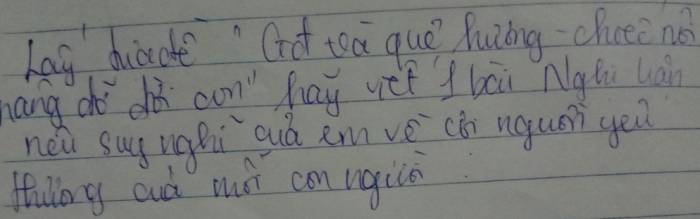 Lấy nhan đề "Giọt toả quê hương - chiếc nôi
nâng đỡ đời con" hãy viết 1 bài Nghị luận
nêu suy nghĩ của em về cội nguồn yêu
thương của mỗi con người.